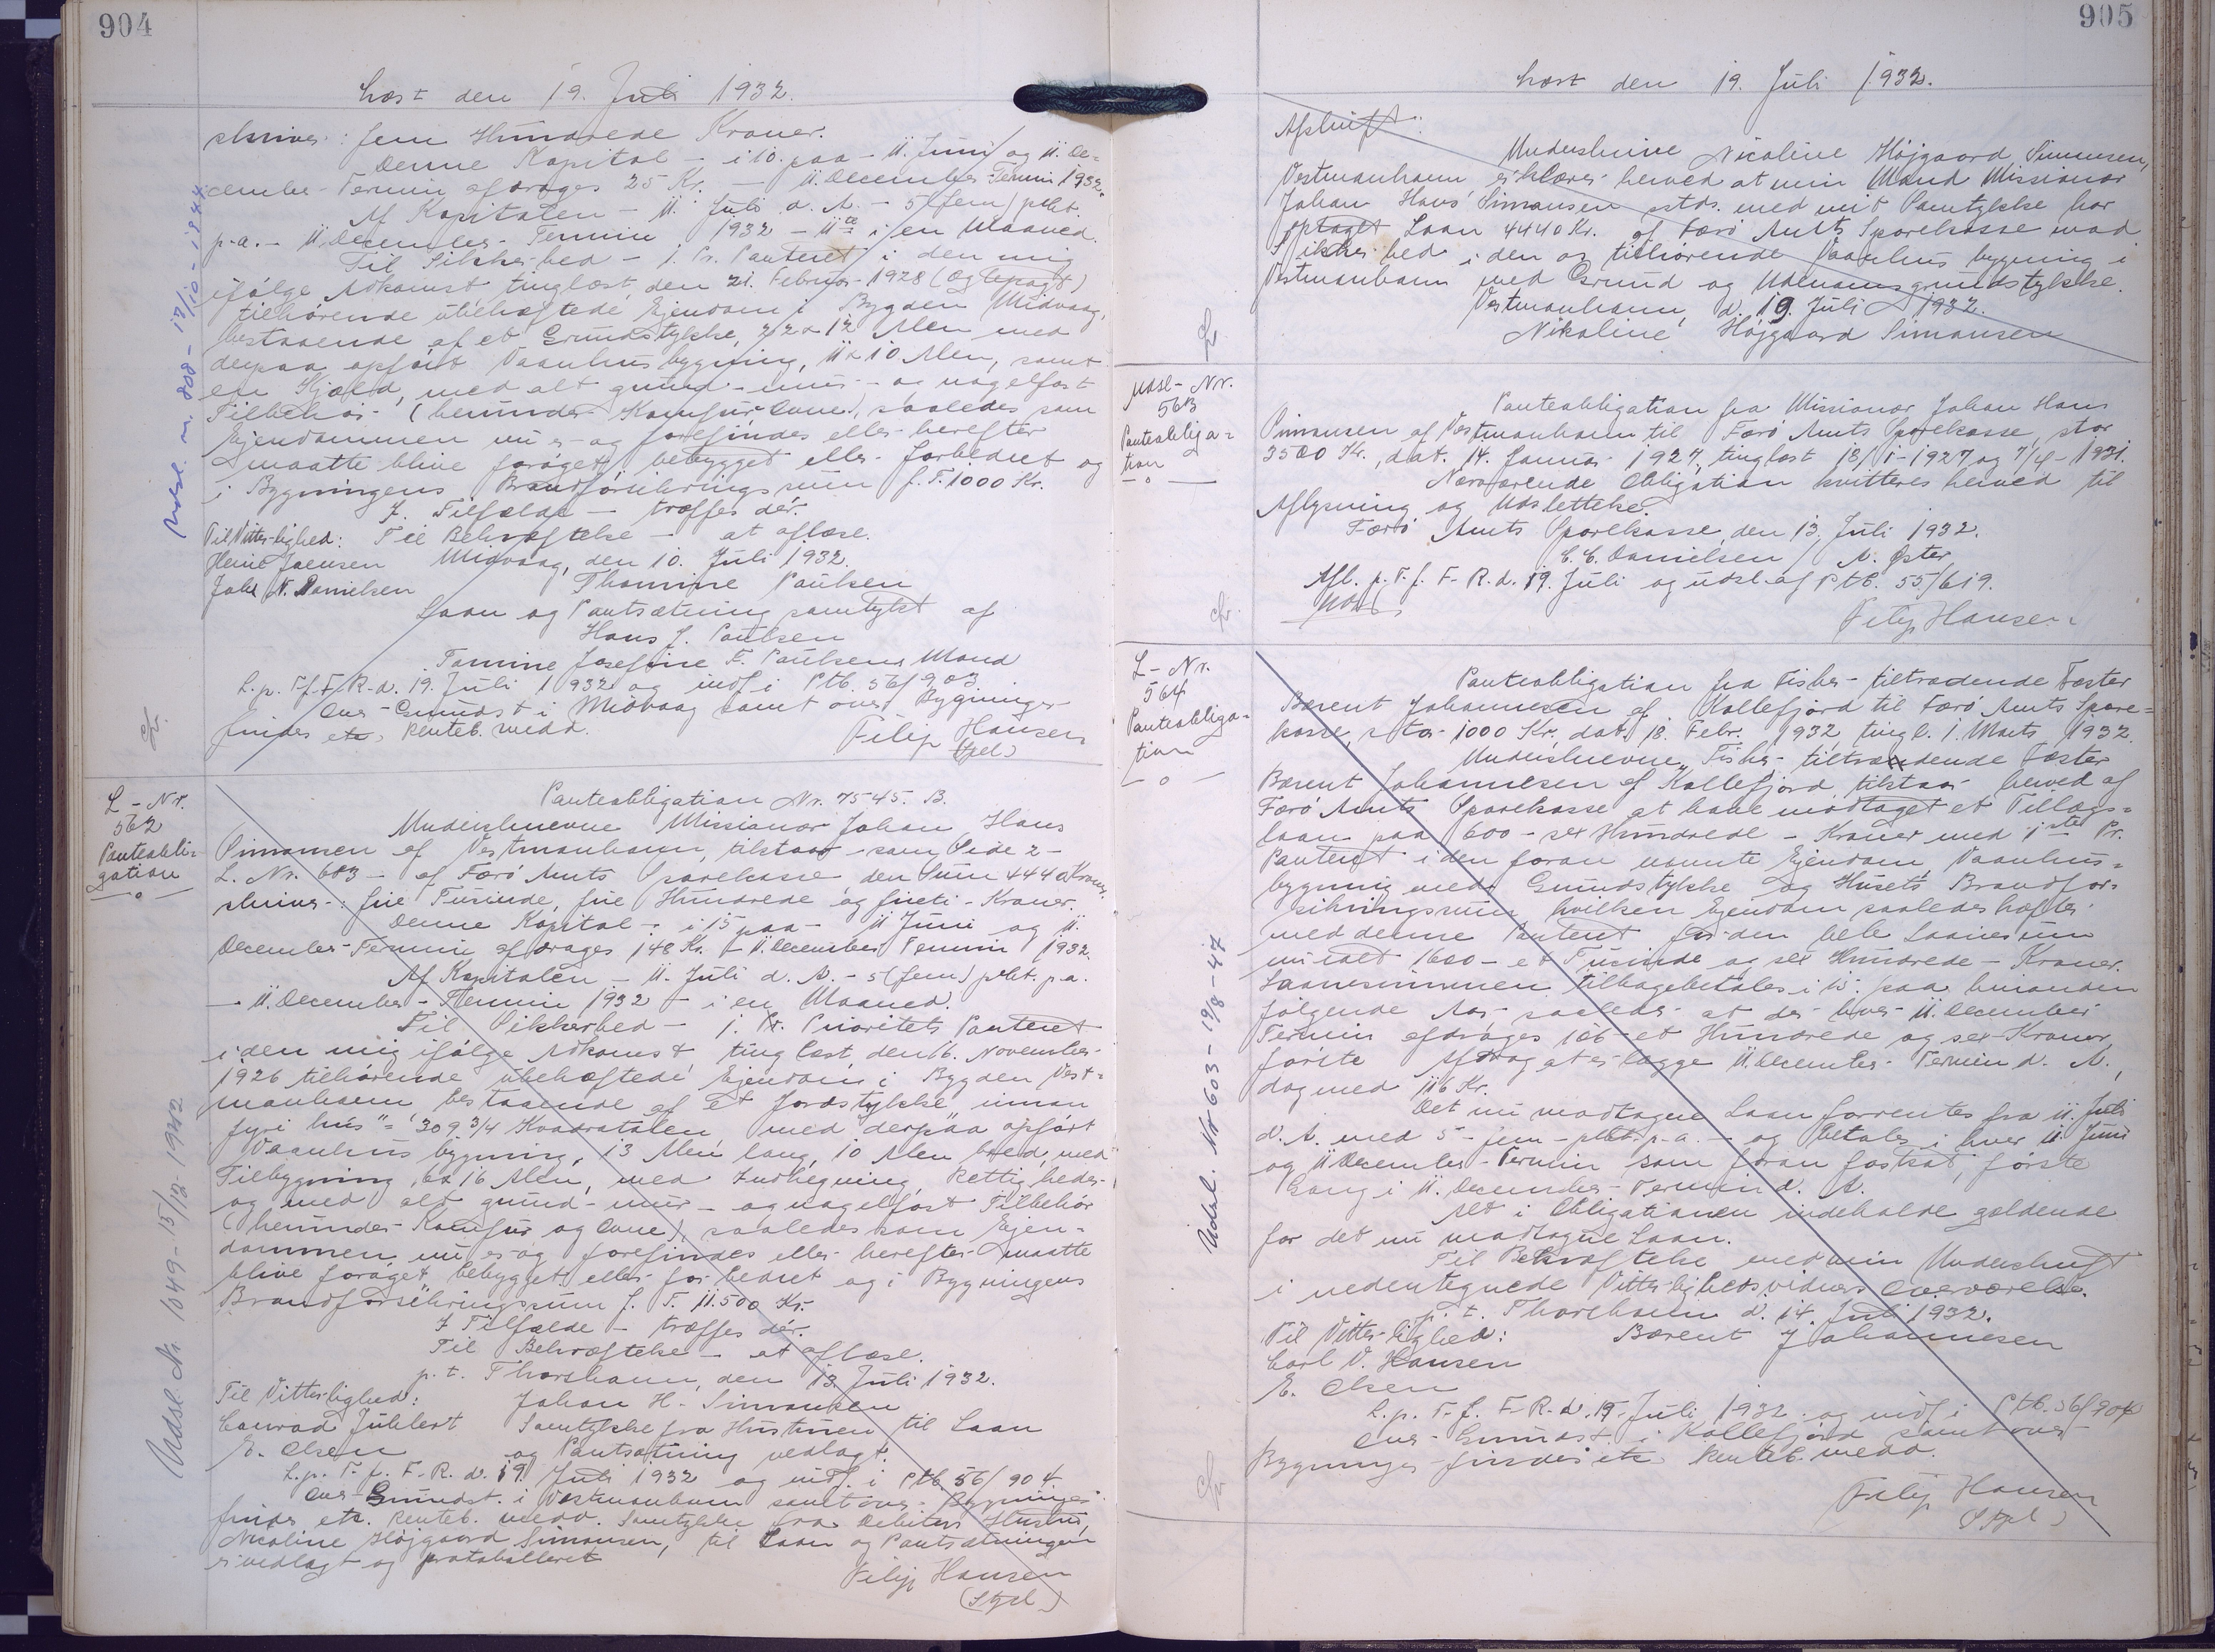 904
Læst den 19. Juli 1932.
skriver: fem Hundrede Kroner.
Denne Kapital - i 10. paa - 11. Juni og 11. De=
cember-Termin afdrages 25 Kr. - 11. December-Termin 1932.
Af Kapitalen - 11. Juli d. A. - 5 (fem) pCt.
p.a. - 11. December-Termin 1932 - 11te i en Maaned.
Til Sikkerhed - 1. Pr. Panteret i den mig
ifølge Adkomst tinglæst den 21. Februar 1928 (og lepagt)
tilhørende ubehæftede Ejendom i Bygden Midvaag,
bestaaende af et Grundstykke, 22 x 12 Alen med
derpaa opført Vaanhusbygning, 11 x 10 Alen, samt
en Kjæld, med alt grund- mur- og nagelfast
Tilbehør (herunder Komfur Ovne), saaledes som
Ejendommen nu er og forefindes eller herefter
maatte blive forøget, bebygget eller forbedret og
i Bygningens Brandforsikringssum f. T. 1000 Kr.
I Tilfælde - træffes dér.
Til Vitterlighed: Til Bekræftelse - at aflæse.
Heine Joensen Midvaag, den 10. Juli 1932.
Johs N. Danielsen Thomine Paulsen
Laan og Pantsætning samtykt af
Hans J. Paulsen
Tomine Josefine F. Paulsens Mand
L. p. T. f. F. R. d. 19. Juli 1932 og indf i Ptb. 56/903
Over Grundst i Midvaag samt over Bygninger
findes etc. Renteb. medd.
Filip Hansen
(Stpl)
Udsl. nr. 808 - 17/10 - 1944
L-Nr.
562
Panteobli-
gation
Panteobligation Nr. 7545. B.
Underskrevne Missionær Johan Hans
Simonsen af Vestmanhavn, tilstaar - som Side 2 -
L. Nr. 683 - af Færø Amts Sparekasse den Sum 4440 Kroner
skriver: fire Tusinde, fire Hundrede og fireti - Kroner.
Denne Kapital - i 15 paa - 11 Juni og 11.
December-Termin afdrages 148 Kr. - 11. December Termin 1932.
Af Kapitalen - 11. Juli d. A. - 5 (fem) pCt. p.a.
- 11. December-Termin 1932 - i en Maaned.
Til Sikkerhed - 1. Pr. Prioritets Panteret
i den mig ifølge Adkomst tinglæst den 16. November
1926 tilhørende ubehæftede Ejendom i Bygden Vest=
manhavn bestaaende af et Jordstykke "uman
fyri hús" = 309 3/4 Kvadratalen med derpaa opført
Vaanhusbygning, 13 Alen lang, 10 Alen bred, med
Tilbygning, 6 x 16 Alen, med Indhegning, Rettigheder,
og med alt grund- mur- og nagelfast Tilbehør
(herunder Komfur og Ovne), saaledes som Ejen=
dommen nu er og forefindes eller herefter maatte
blive forøget, bebygget eller forbedret og i Bygningens
Brandforsikringssum f. T. 11.500 Kr.
I Tilfælde - træffes dér.
Til Bekræftelse - at aflæse.
p. t. Thorshavn, den 13. Juli 1932.
Til Vitterlighed: Johan H. Simonsen
Conrad Juhlert Samtykke fra Hustruen til Laan
E. Olsen og Pantsætning vedlagt.
L. p. T. f. F. R. d. 19. Juli 1932 og indf. i Ptb. 56/904.
Over Grundst. i Vestmanhavn samt over Bygninger
findes etc. Renteb. medd. Samtykke fra Debitors Hustru,
Nicoline Højgaard Simonsen, til Laan og Pantsætningen
er vedlagt og protokolleret
Filip Hansen
(Stpl)
Udsl. Nr. 1049 - 15/12 1942
905
Læst den 19. Juli 1932.
Afskrift:
Underskrivne Nicoline Højgaard Simonsen,
Vestmanhavn erklærer herved at min Mand Missionær
Johan Hans Simonsen sstds. med mit Samtykke har
optaget Laan 4440 Kr. af Færø Amts Sparekasse mod
Sikkerhed i den os tilhørende Vaanhusbygning i
Vestmanhavn med Grund og Udenomsgrundstykke.
Vestmanhavn, d. 19. Juli 1932.
Nikoline Højgaard Simonsen
Udsl-Nr.
563
Panteobliga=
tion
Panteobligation fra Missionær Johan Hans
Simonsen af Vestmanhavn til Færø Amts Sparekasse, stor
3500 Kr., dat. 14. Januar 1927, tinglæst 18/1-1927 og 7/4-1931.
Nærværende Obligation kvitteres herved til
Aflysning og Udslettelse.
Færø Amts Sparekasse, den 13. Juli 1932.
C. C. Danielsen / N. Øster
Afl. p. T. f. F. R. d. 19. Juli og udsl. af Ptb. 55/619.
Filip Hansen
L-Nr.
564
Panteobliga-
tion
Panteobligation fra Fisker tiltrædende Fæster
Bærent Johannesen af Kollefjord til Færø Amts Spare=
kasse, stor 1000 Kr, dat. 18. Febr. 1932 tingl. 1. Marts 1932.
Underskrevne, Fisker tiltrædende Fæster
Bærent Johannesen af Kollefjord, tilstaar herved af
Færø Amts Sparekasse at have modtaget et Tillægs=
laan paa 600 - sex Hundrede - Kroner med 1ste Pr.
Panteret i den foran nævnte Ejendom, Vaanhus=
bygning med Grundstykke og Husets Brandfor=
sikringssum, hvilken Ejendom saaledes hæfter
med denne Panteret for den hele Laanesum
nu ialt 1600 - et Tusinde og sex Hundrede - Kroner.
Laanesummen tilbagebetales i 15. paa hinanden
følgende Aar saaledes at der hver 11. December
Termin afdrages 106 - et Hundrede og sex Kroner,
første Afdrag at erlægge 11. December Termin d. A.,
dog med 116 Kr.
Det nu modtagne Laan forrentes fra 11. Juli
d. A. med 5 - fem - pCt. p.a. - og betales i hver 11. Juni
og 11 December-Termin som foran fastsat, første
Gang i 11. December-Termin d. A.
Alt i Obligationen indeholde gældende
for det nu modtagne Laan.
Til Bekræftelse med min Underskrift
i nedentegnede Vitterlighedsvidners Overværelse.
p. t. Thorshavn d. 14. Juli 1932.
Til Vitterlighed: Bærent Johannesen
Carl V. Hansen
E. Olsen
L. p. T. f. F. R. d. 19. Juli 1932 og indf i Ptb. 56/904
Over Grundst. i Kollefjord samt over
Bygninger findes etc Renteb. medd.
Filip Hansen
(Stpl)
Udsl. Nr 603 - 19/8 - 47